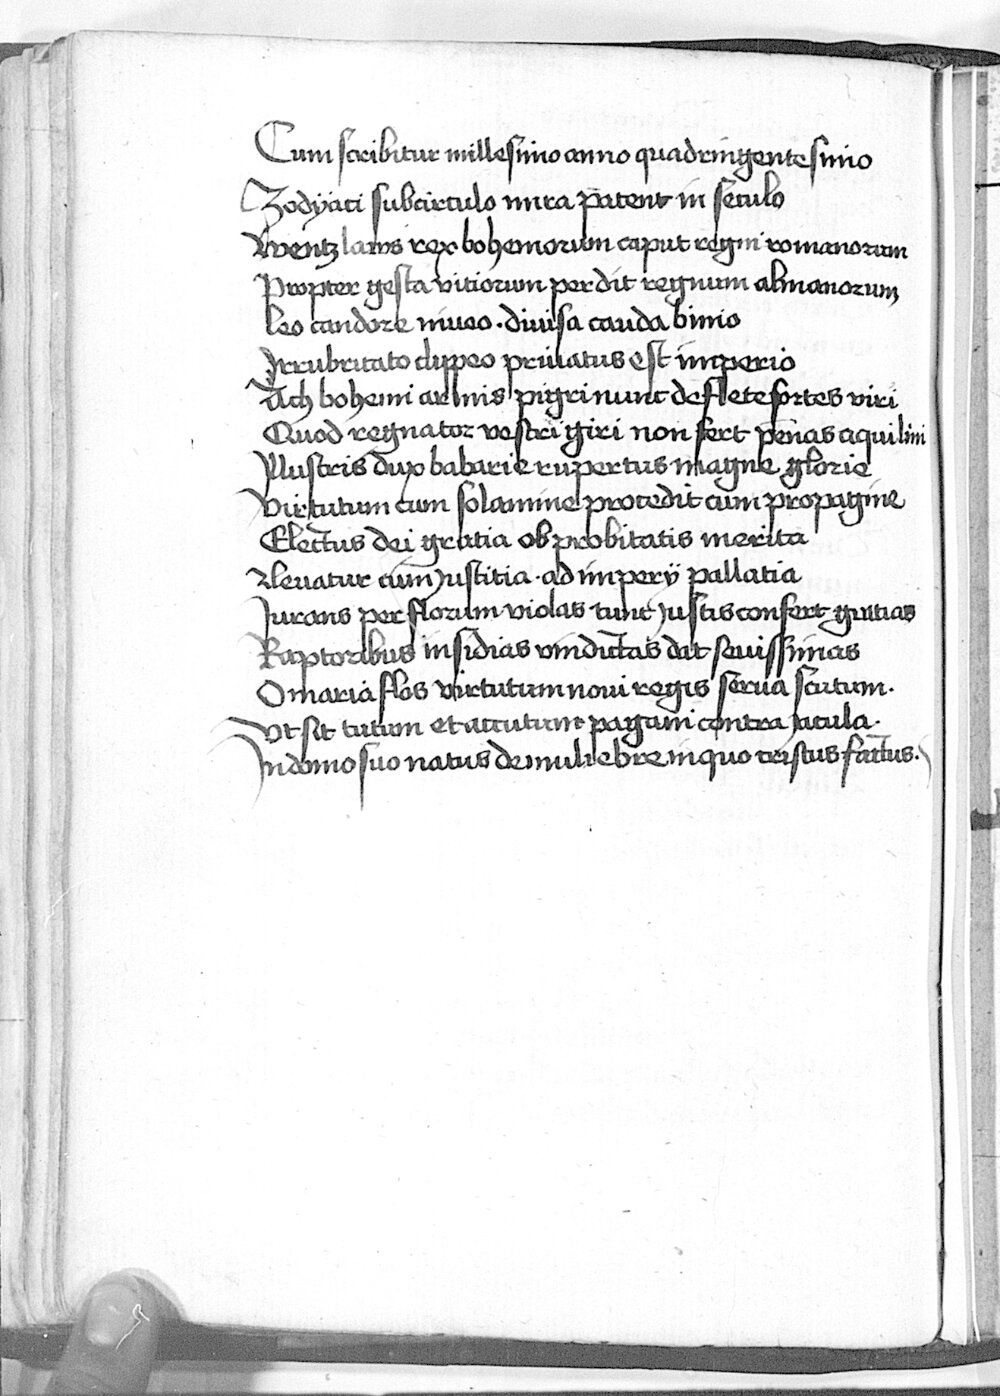 Cum scribitur millesimo anno quadringentesimo
Zodyaci subcirculo mira patent in seculo
Wentzlaws rex bohemorum caput regni romanorum
Propter gesta vitiorum perdit regnum almanorum
Leo candore niveo · divisa cauda binio
Irrubricato clippeo privatus est imperio
Ach bohemi armis pigri nunc deflete fortes viri
Quod regnator vestri giri non fert pennas aquilini
Illustris dux babarie rupertus magne glorie
Virtutum cum solamine procedit cum propagine
Electus dei gratia ob probitatis merita
Elevatur cum justitia · ad imperij pallatia
Jurans per florum violas tunc justis confert gratias
Raptoribus insidias vindictas dat sevissimas
O maria flos virtutum novi regis serva scutum ·
Ut sit tutum et accutum pagani contra jacula ·
In domo suo natus de muliebre in quo tristus factus ·